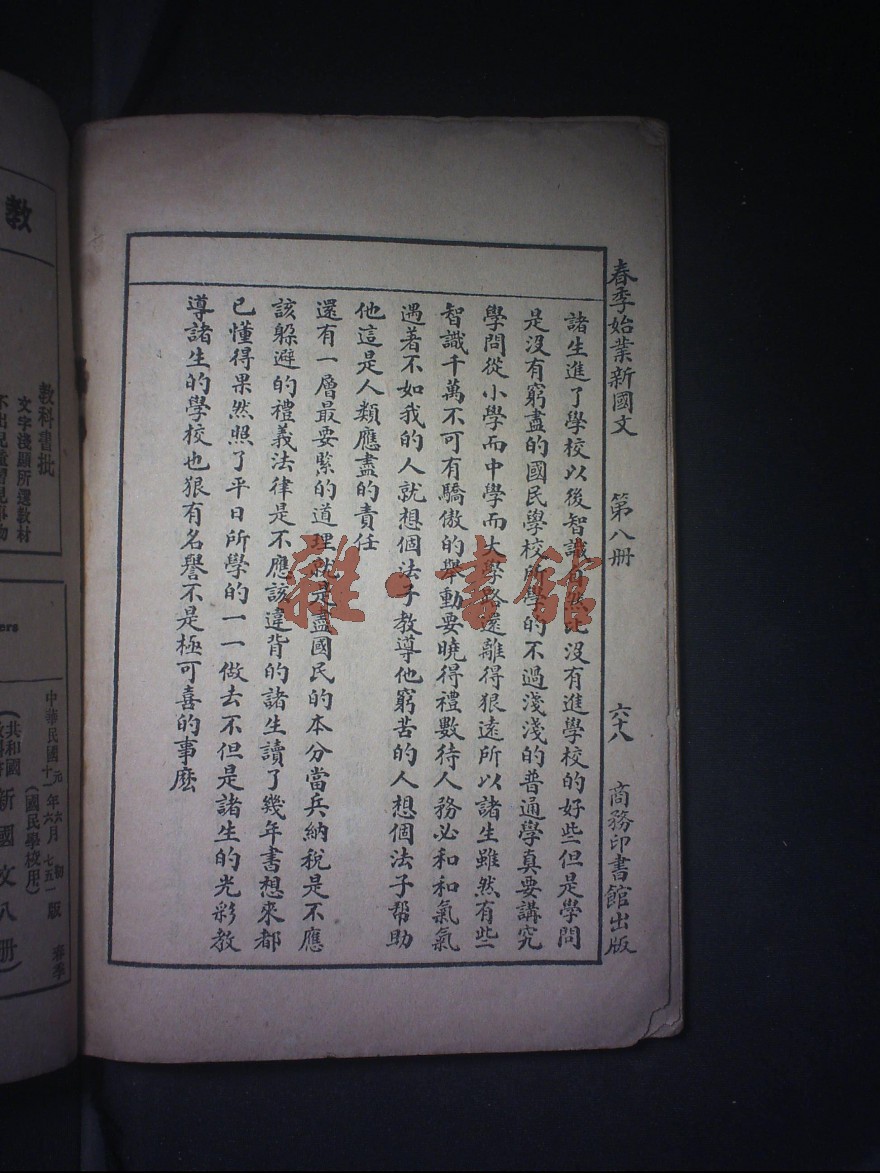 春季始業新國文 第八册 六十八 商務印書館出版
諸生進了學校以後智識自然比沒有進學校的好些但是學問
是沒有窮盡的國民學校所學的不過淺淺的普通學真要講究
學問從小學而中學而大學路途離得狠遠所以諸生雖然有些
智識千萬不可有驕傲的舉動要曉得禮數待人務必和和氣氣
遇着不如我的人就想個法子教導他窮苦的人想個法子幫助
他這是人類應盡的責任
還有一層最要緊的道理就是盡國民的本分當兵納稅是不應
該躲避的禮義法律是不應該違背的諸生讀了幾年書想來都
已懂得果然照了平日所學的一一做去不但是諸生的光彩教
導諸生的學校也狠有名譽不是極可喜的事麽
雜·書館
教
教科書批
文字淺顯所選教材
不出兒童習見事物
ers
中華民國元年六月初版
十一年六月七五一版
春季
(國民學校用)
共和國
新國文八册